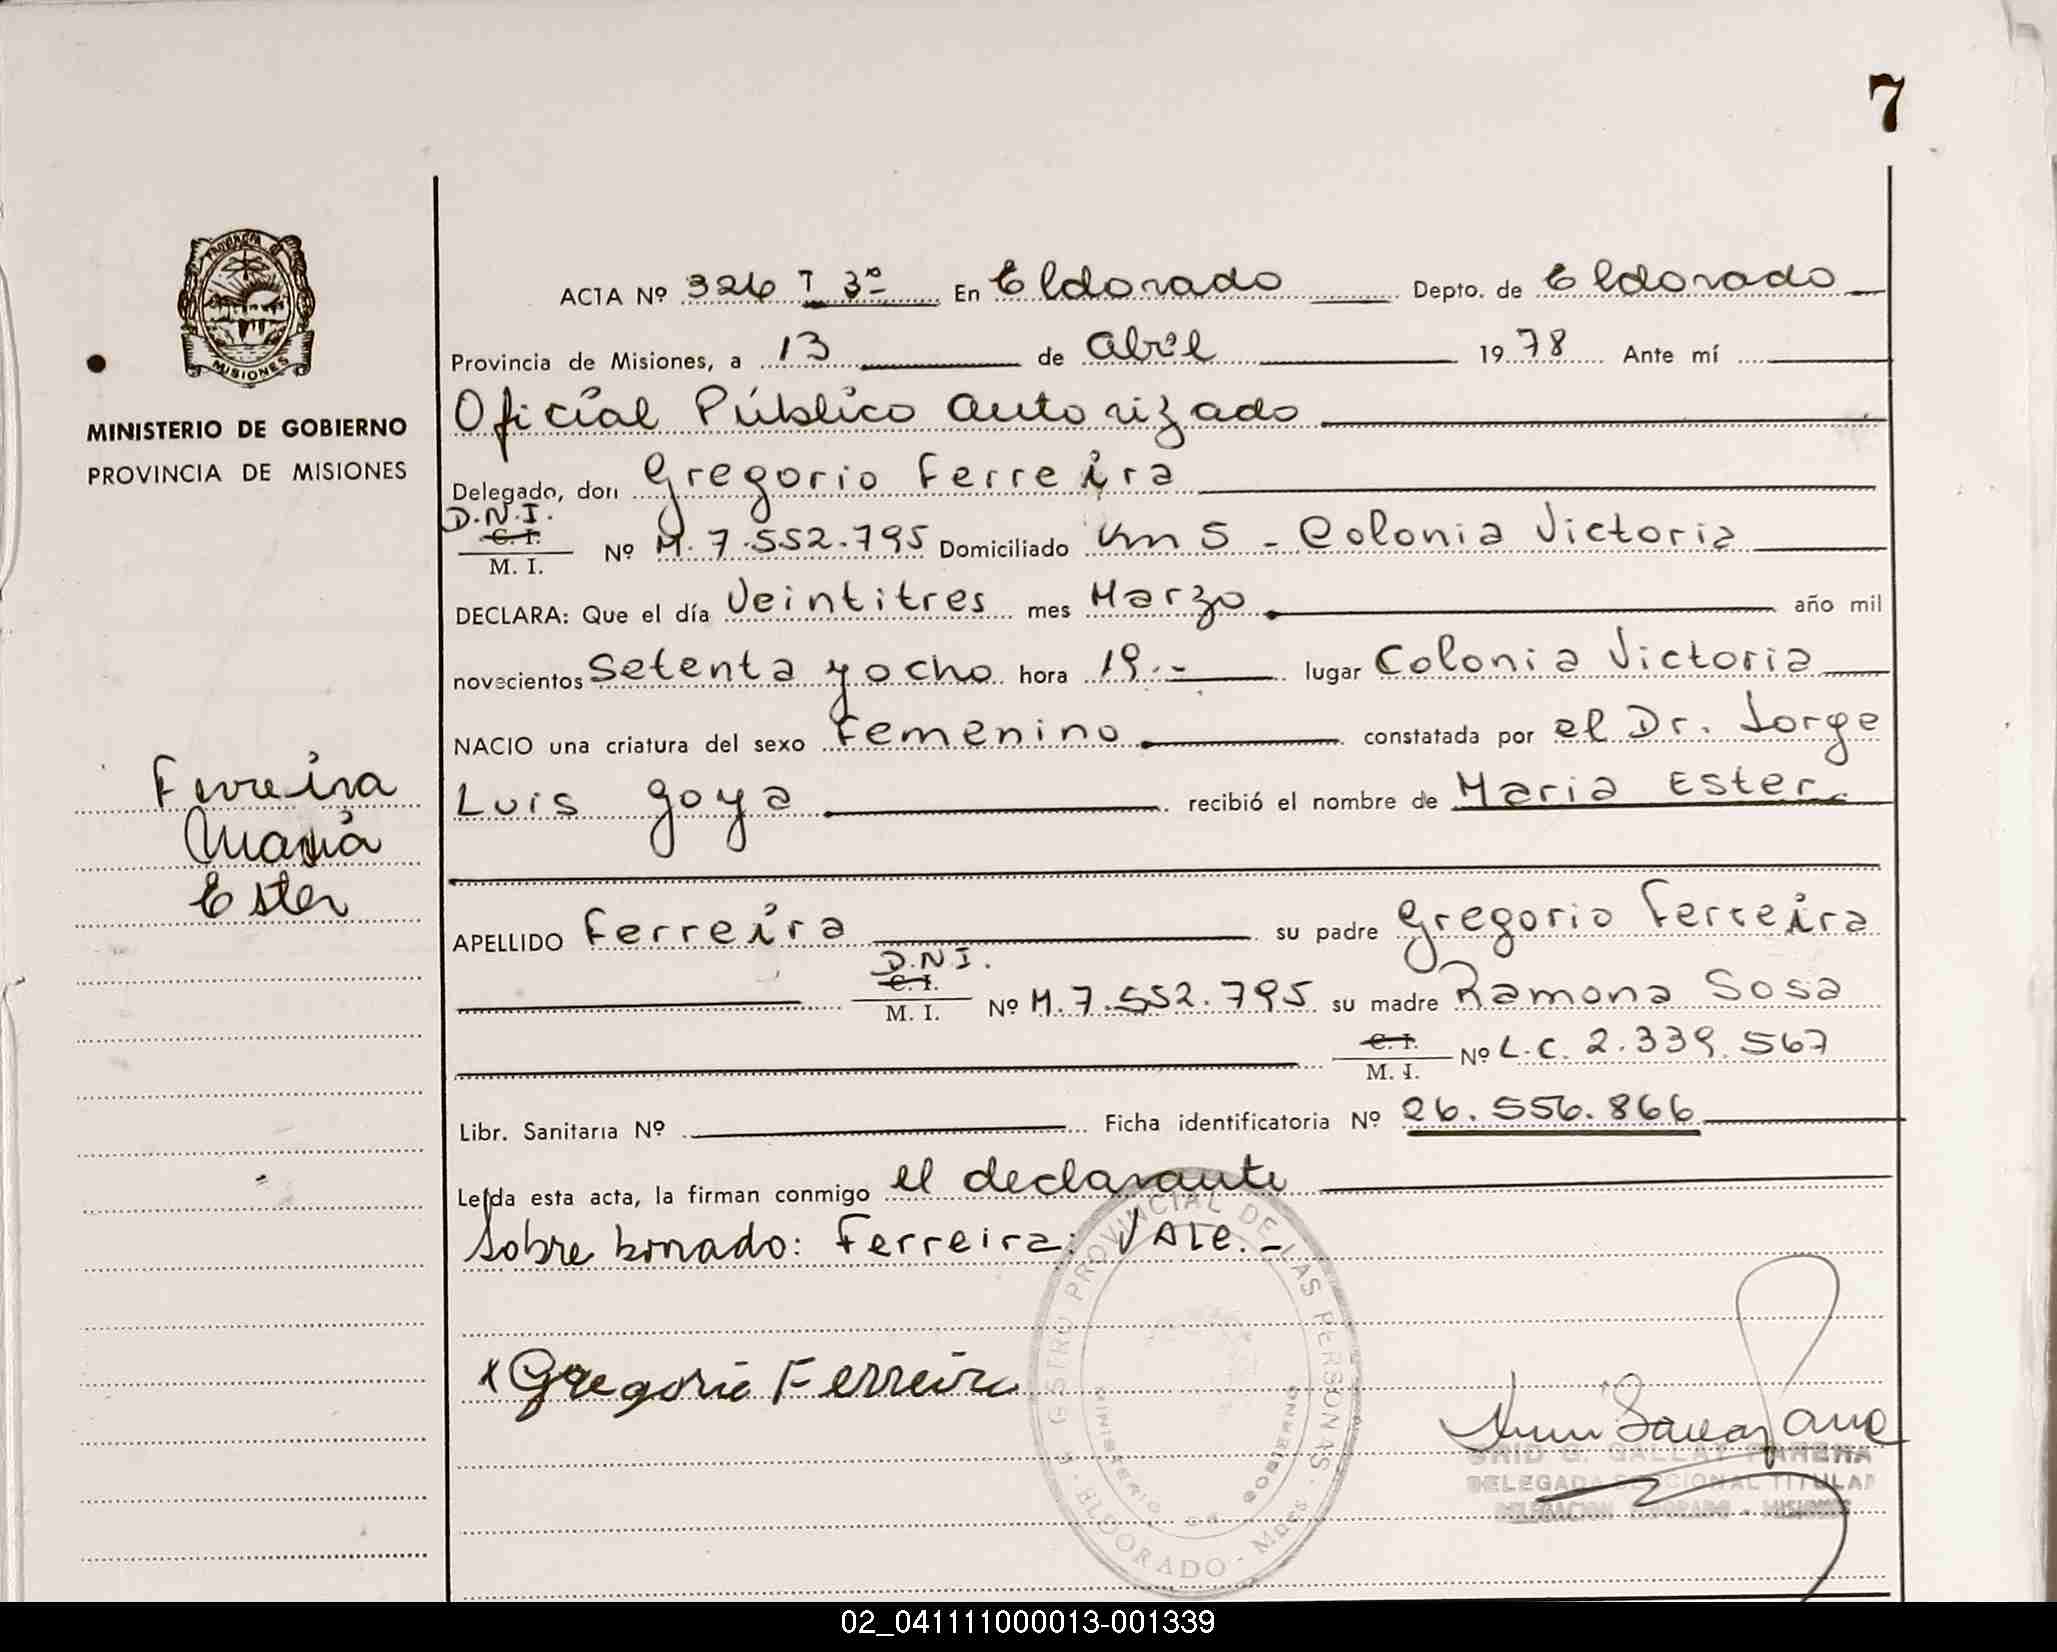 7
PROVINCIA DE
MISIONES
MINISTERIO DE GOBIERNO
PROVINCIA DE MISIONES
Ferreira
Maria
Ester
ACTA Nº 326 T 3º En Eldorado Depto. de Eldorado
Provincia de Misiones, a 13 de abril 1978 Ante mí
Oficial Público autorizado
Delegado, don Gregorio Ferreira
D.N.I.
C. I.
M. I. Nº M. 7.552.795 Domiciliado Km 5 - Colonia Victoria
DECLARA: Que el día Veintitres mes Marzo año mil
novecientos setenta y ocho hora 19.- lugar Colonia Victoria
NACIO una criatura del sexo Femenino constatada por el Dr. Jorge
Luis Goya recibió el nombre de Maria Ester.
APELLIDO Ferreira su padre Gregorio Ferreira
D.N.I.
C. I.
M. I. Nº M.7.552.795 su madre Ramona Sosa
C. I.
M. I. Nº L.C. 2.339.567
Libr. Sanitaria Nº Ficha identificatoria Nº 26.556.866
Leída esta acta, la firman conmigo el declarante
Sobre borrado: Ferreira: Vale.-
x Gregorio Ferreira
REGISTRO PROVINCIAL DE LAS PERSONAS
MINISTERIO DE GOBIERNO
ELDORADO - Mnes.
G. GALLAY
DELEGADA SECCIONAL TITULAR
DELEGACION ELDORADO - MISIONES
02_041111000013-001339